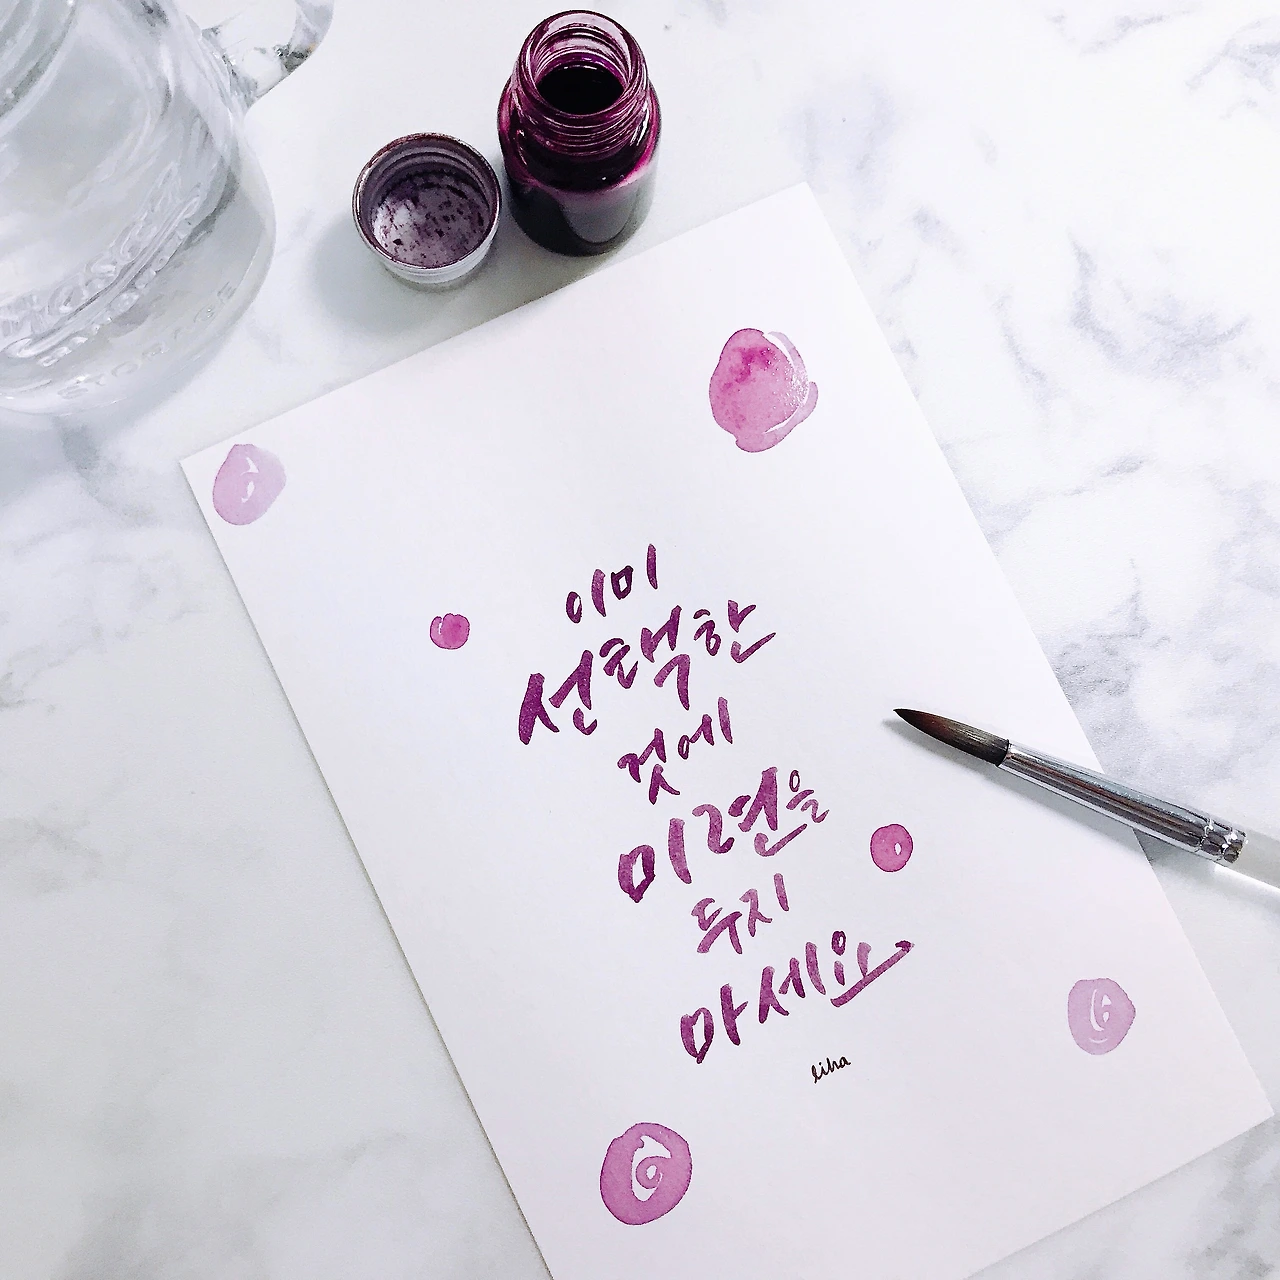 이미
선택한
것에
미련을
두지
마세요